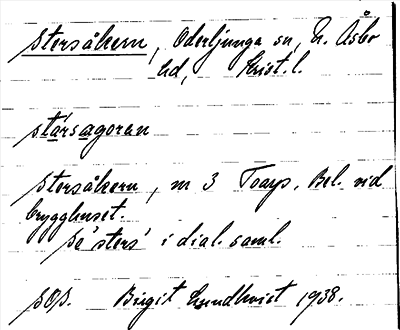 Storsåkern, Oderljunga sn, N. Åsbo
hd, Krist. l.
stársagoran
Storsåkern, m 3 Toays. Bel. vid
brygghuset.
se 'stors' i dial. saml.
SOS. Birgit Lundkvist 1938.